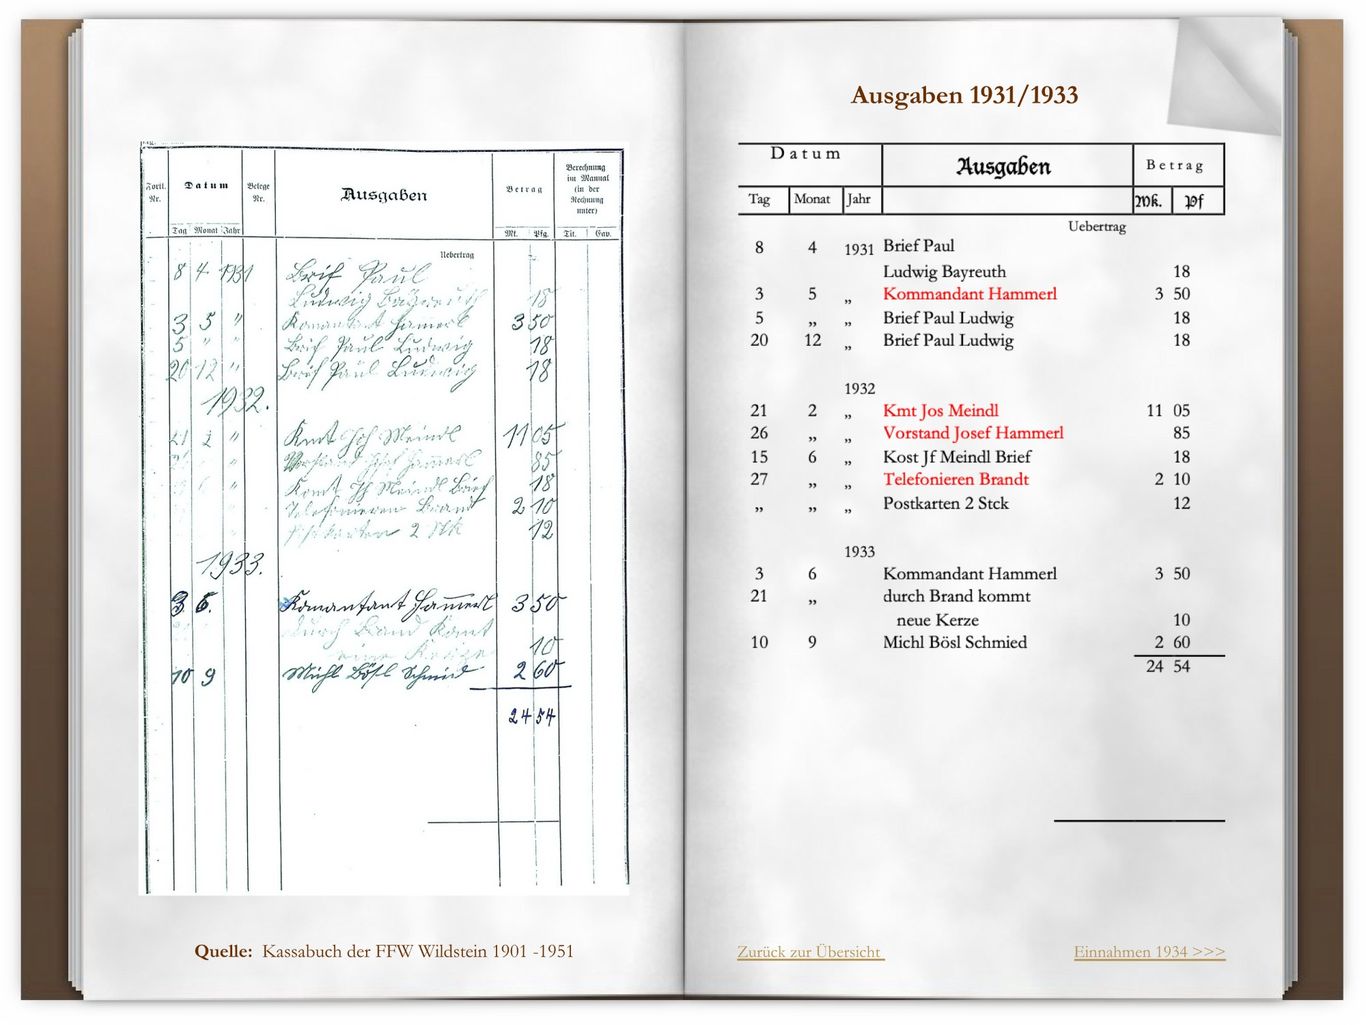 Fortl. Nr. Datum Belege Nr. Ausgaben Betrag Berechnung im Manual (in der Rechnung unter)
Tag Monat Jahr Mk. Pfg. Tit. Cav.
Uebertrag
8 4 1931 Brif Paul
Ludwig Bayreuth 18
3 5 " Komantant Hamerl 3 50
5 " " Brif Paul Ludwig 18
20 12 " Brif Paul Ludwig 18
1932.
21 2 " Kmt Jos Meindl 11 05
Vorstand Josef Hamerl 85
6 " Komt Jf Meindl Brief 18
" Telefonieren Brand 2 10
Postkarten 2 Stk 12
1933.
3 6. Komantant Hamerl 3 50
durch Brand Komt
neue Kerze 10
10 9 Michl Bösl Schmid 2 60
24 54
Quelle: Kassabuch der FFW Wildstein 1901 -1951
Ausgaben 1931/1933
Datum Ausgaben Betrag
Tag Monat Jahr Mk. Pf
Uebertrag
8 4 1931 Brief Paul
Ludwig Bayreuth 18
3 5 „ Kommandant Hammerl 3 50
5 „ „ Brief Paul Ludwig 18
20 12 „ Brief Paul Ludwig 18
1932
21 2 „ Kmt Jos Meindl 11 05
26 „ „ Vorstand Josef Hammerl 85
15 6 „ Kost Jf Meindl Brief 18
27 „ „ Telefonieren Brandt 2 10
„ „ „ Postkarten 2 Stck 12
1933
3 6 Kommandant Hammerl 3 50
21 „ durch Brand kommt
neue Kerze 10
10 9 Michl Bösl Schmied 2 60
24 54
Zurück zur Übersicht
Einnahmen 1934 >>>